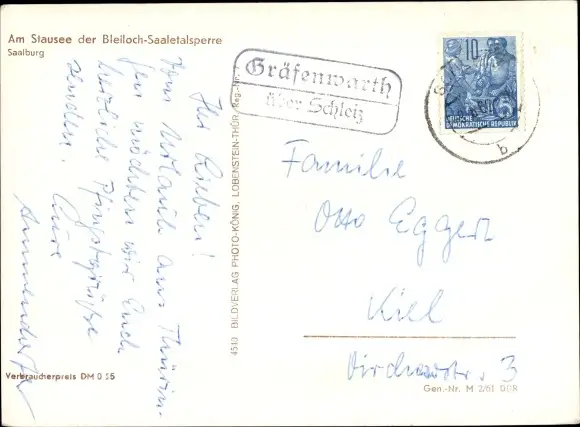 Am Stausee der Bleiloch-Saaletalsperre
Saalburg
Gräfenwarth
über Schleiz
10
DEUTSCHE
DEMOKRATISCHE REPUBLIK
b
Ihr Lieben!
Vom Urlaub aus Thürin-
gen möchten wir Euch
herzliche Pfingstgrüße
senden.
Eure
Ammendorfer
4510 BILDVERLAG PHOTO-KÖNIG, LOBENSTEIN-THÜR.
Familie
Otto Eggert
Kiel
Virchowstr. 3
Verbraucherpreis DM 0
Gen.-Nr. M 2/61 DDR